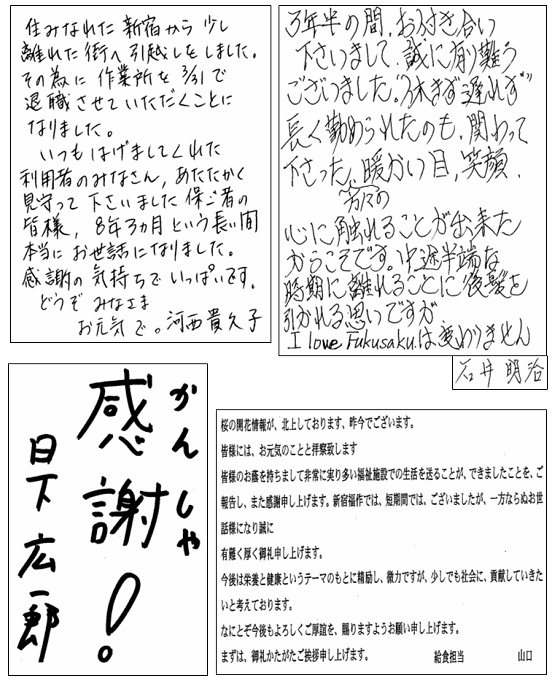 住みなれた新宿から少し
離れた街へ引越しをしました。
その為に作業所を3/31で
退職させていただくことに
なりました。
いつもはげましてくれた
利用者のみなさん,あたたかく
見守って下さいました保ご者の
皆様,8年3ヵ月という長い間
本当にお世話になりました。
感謝の気持ちでいっぱいです。
どうぞみなさま
お元気で。河西貴久子
3年半の間、お付き合い
下さいまして、誠に有難う
ございました。“休まず遅れず”
長く勤められたのも、関わって
下さった、方々の暖かい目、笑顔、
心に触れることが出来た
からこそです。中途半端な
時期に離れることに後髪を
引かれる思いですが、
I love Fukusakuは変わりません
石井明治
感謝!
かんしゃ
日下広一郎
桜の開花情報が、北上しております、昨今でございます。
皆様には、お元気のことと拝察致します
皆様のお蔭を持ちまして非常に実り多い福祉施設での生活を送ることが、できましたことを、ご
報告し、また感謝申し上げます。新宿福作では、短期間では、ございましたが、一方ならぬお世
話様になり誠に
有難く厚く御礼申し上げます。
今後は栄養と健康というテーマのもとに精励し、微力ですが、少しでも社会に、貢献していきた
いと考えております。
なにとぞ今後もよろしくご厚誼を、賜りますようお願い申し上げます。
まずは、御礼かたがたご挨拶申し上げます。 給食担当 山口